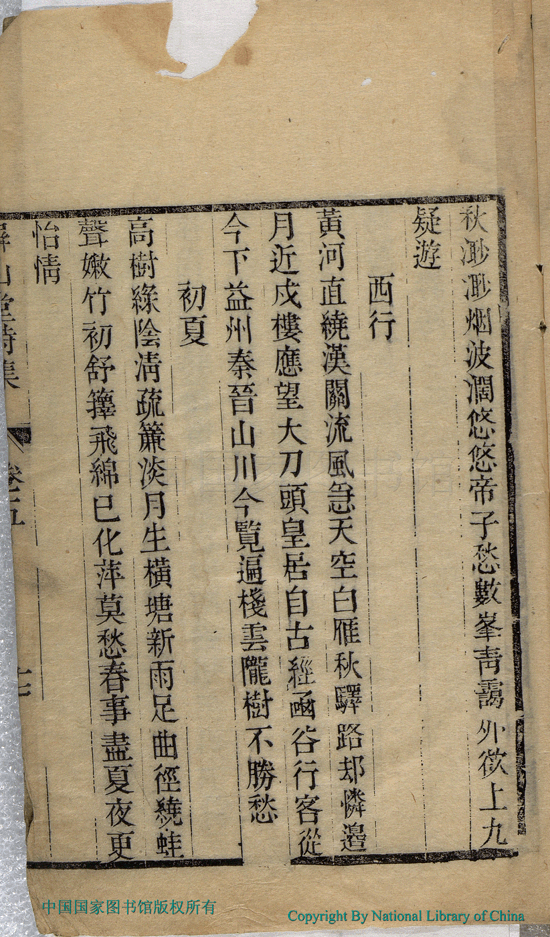 秋渺渺烟波濶悠悠帝子愁數峯靑靄外欲上九
疑遊
西行
黃河直繞漢關流風急天空白雁秋驛路却憐邊
月近戍樓應望大刀頭皇居自古經函谷行客從
今下益州秦晉山川今覽遍棧雲隴樹不勝愁
初夏
高樹綠陰淸疏簾淡月生橫塘新雨足曲徑繞蛙
聲嫩竹初舒籜飛綿已化萍莫愁春事盡夏夜更
怡情
山堂詩集
卷之五
十七
中国国家图书馆版权所有
Copyright By National Library of China